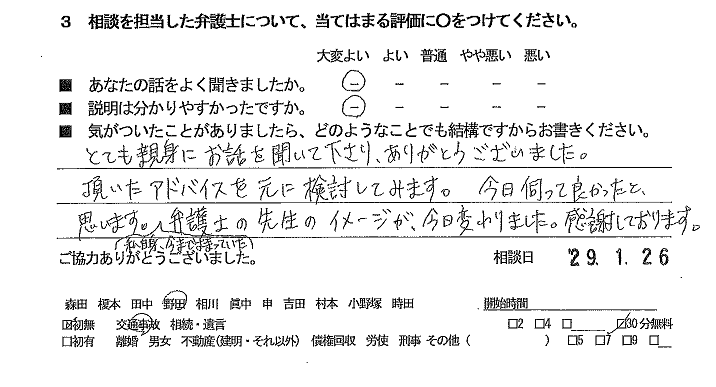 3 相談を担当した弁護士について、当てはまる評価に〇をつけてください。
大変よい よい 普通 やや悪い 悪い
■ あなたの話をよく聞きましたか。 － － － － －
■ 説明は分かりやすかったですか。 － － － － －
■ 気がついたことがありましたら、どのようなことでも結構ですからお書きください。
とても親身にお話を聞いて下さり、ありがとうございました。
頂いたアドバイスを元に検討してみます。 今日伺って良かったと、
思います。弁護士の先生のイメージが、今日変わりました。感謝しております。
ご協力ありがとうございました。 相談日 '29. 1. 26
森田 榎本 田中 野田 相川 眞中 申 吉田 村本 小野塚 時田 開始時間
☑初無 交通事故 相続・遺言 □2 □4 □ ☑30分無料
□初有 離婚 男女 不動産(建明・それ以外) 債権回収 労使 刑事 その他 ( ) □5 □7 □9 □